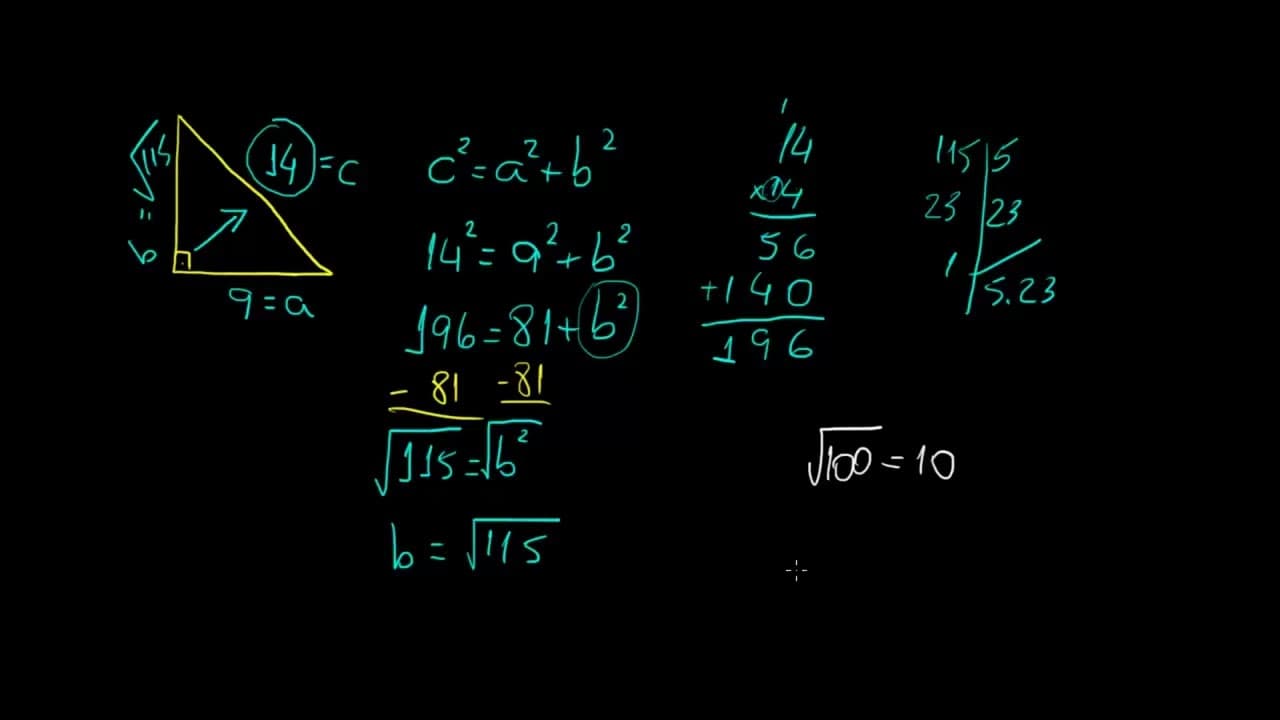 √115
=
b
14 = c
9 = a
c² = a² + b²
14² = 9² + b²
196 = 81 + b²
- 81 -81
√115 = √b²
b = √115
1
14
×14
56
+140
196
115 | 5
23 | 23
1
5.23
√100 = 10